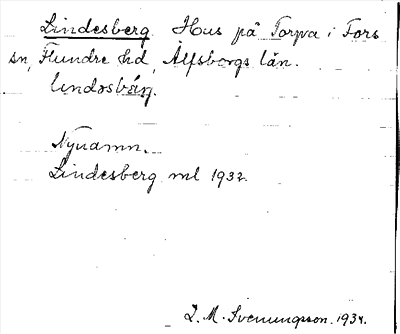 Lindesberg. Hus på Torpa i Fors
sn, Flundre hd, Älfsborgs län.
Nynamn.
Lindesberg ml 1932.
S. M. Svenungsson. 1934.